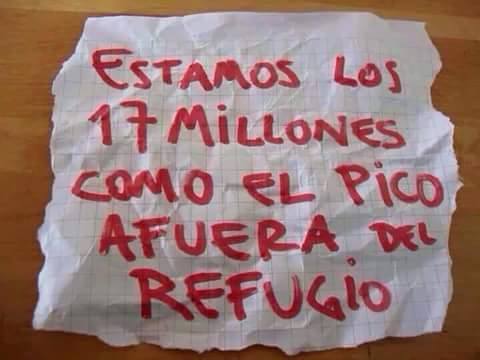 ESTAMOS LOS
17 MILLONES
COMO EL PICO
AFUERA DEL
REFUGIO